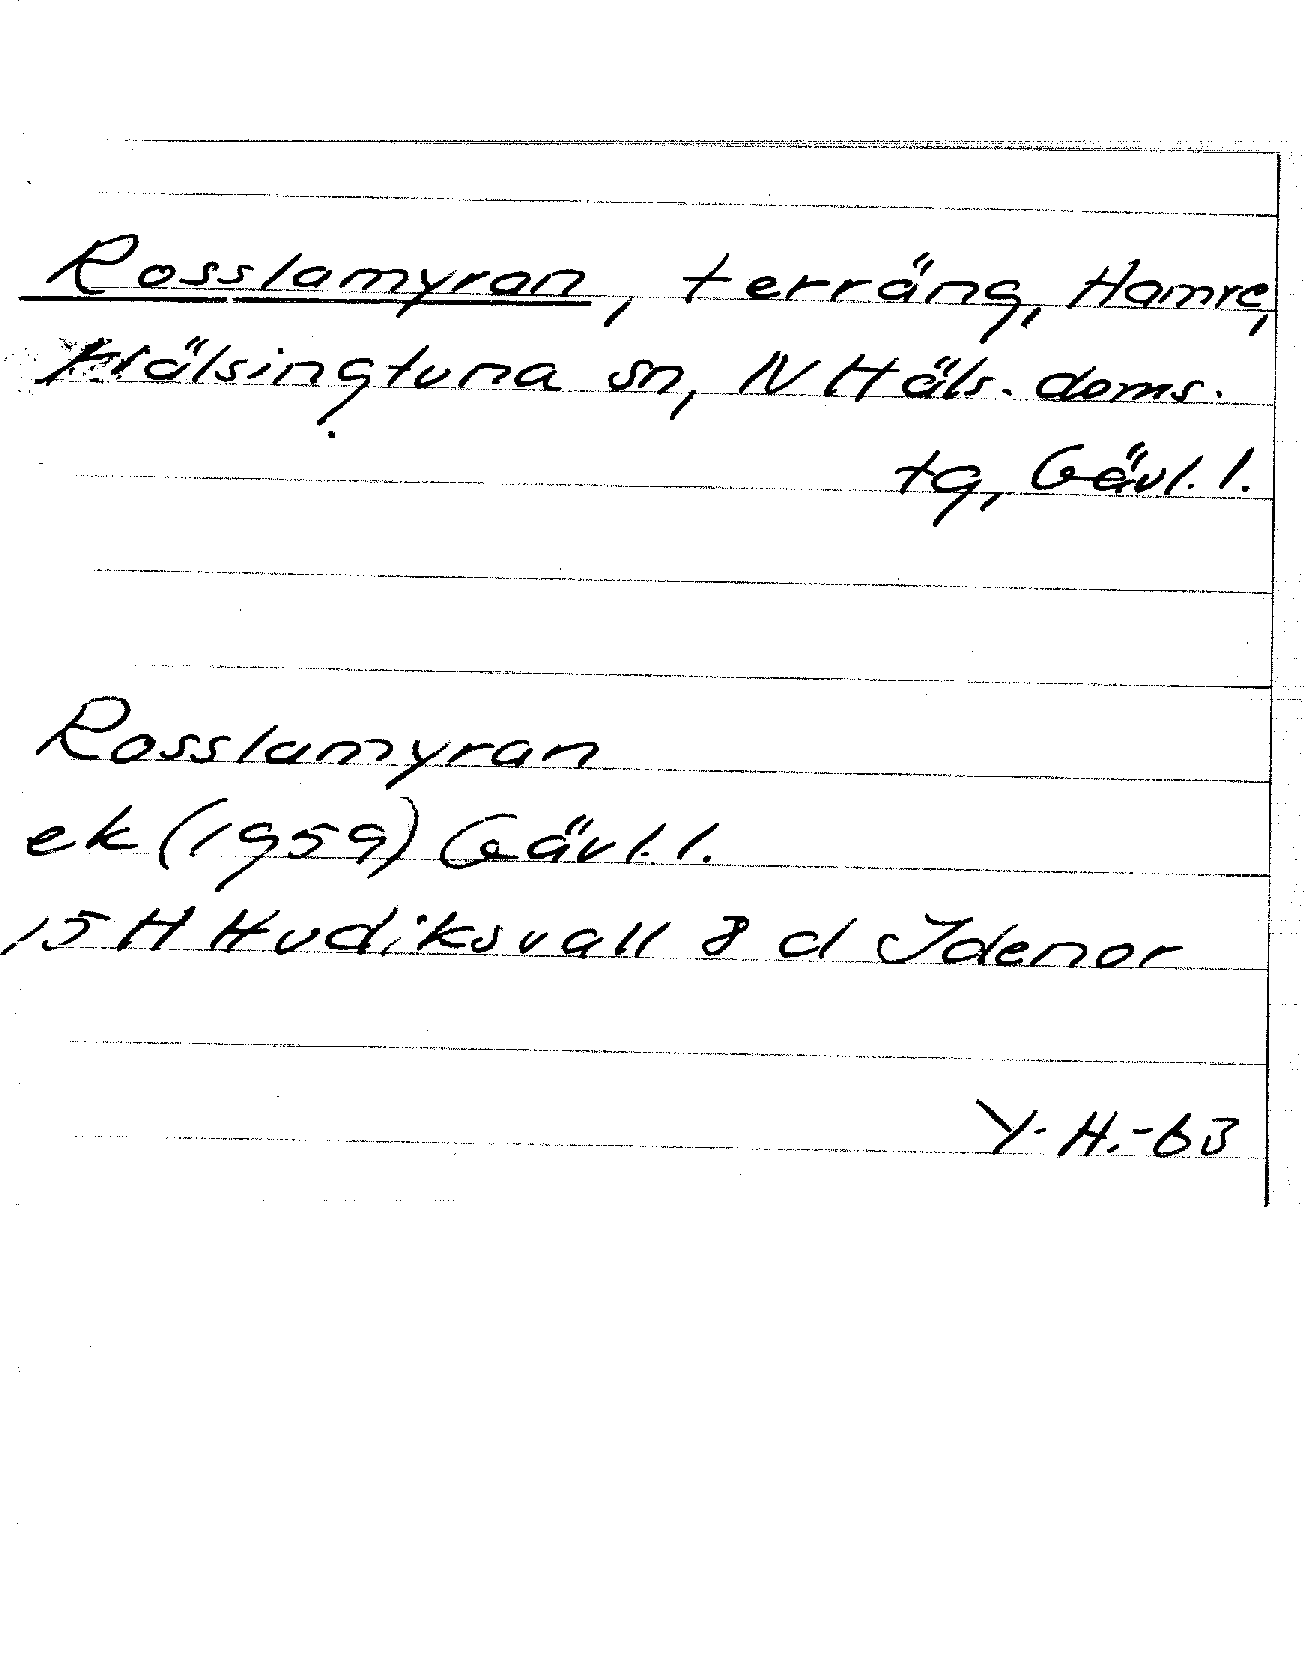 Rosslamyran, terräng, Hamre,
Hälsingtuna sn, N Häls. doms.
tg, Gävl. l.
Rosslamyran
ek (1959) Gävl. l.
15 H Hudiksvall 8 d Idenor
Y. H. -63